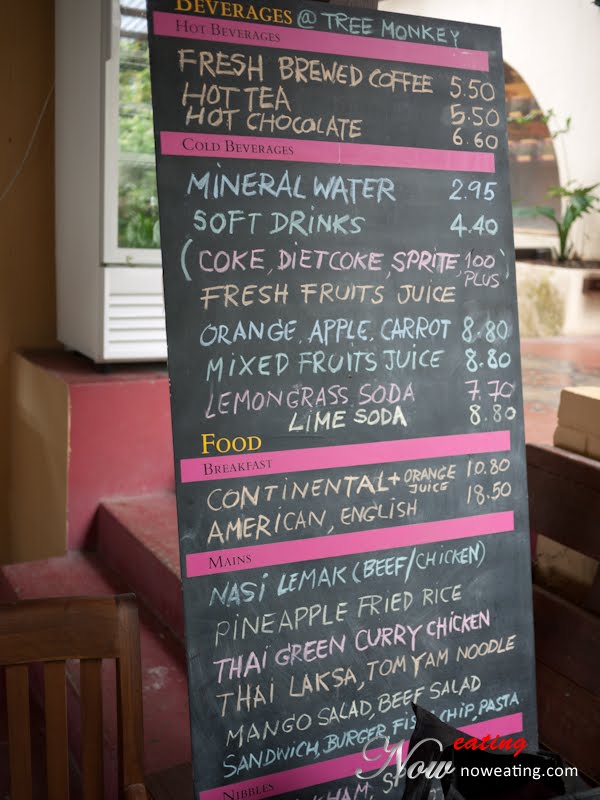 BEVERAGES @ TREE MONKEY
HOT BEVERAGES
FRESH BREWED COFFEE 5.50
HOT TEA 5.50
HOT CHOCOLATE 6.60
COLD BEVERAGES
MINERAL WATER 2.95
SOFT DRINKS 4.40
(COKE, DIET COKE, SPRITE, 100 PLUS)
FRESH FRUITS JUICE
ORANGE, APPLE, CARROT 8.80
MIXED FRUITS JUICE 8.80
LEMONGRASS SODA 7.70
LIME SODA 8.80
FOOD
BREAKFAST
CONTINENTAL + ORANGE JUICE 10.80
AMERICAN, ENGLISH 18.50
MAINS
NASI LEMAK (BEEF/CHICKEN)
PINEAPPLE FRIED RICE
THAI GREEN CURRY CHICKEN
THAI LAKSA, TOM YAM NOODLE
MANGO SALAD, BEEF SALAD
SANDWICH, BURGER, FISH CHIP, PASTA
NIBBLES
Now eating noweating.com